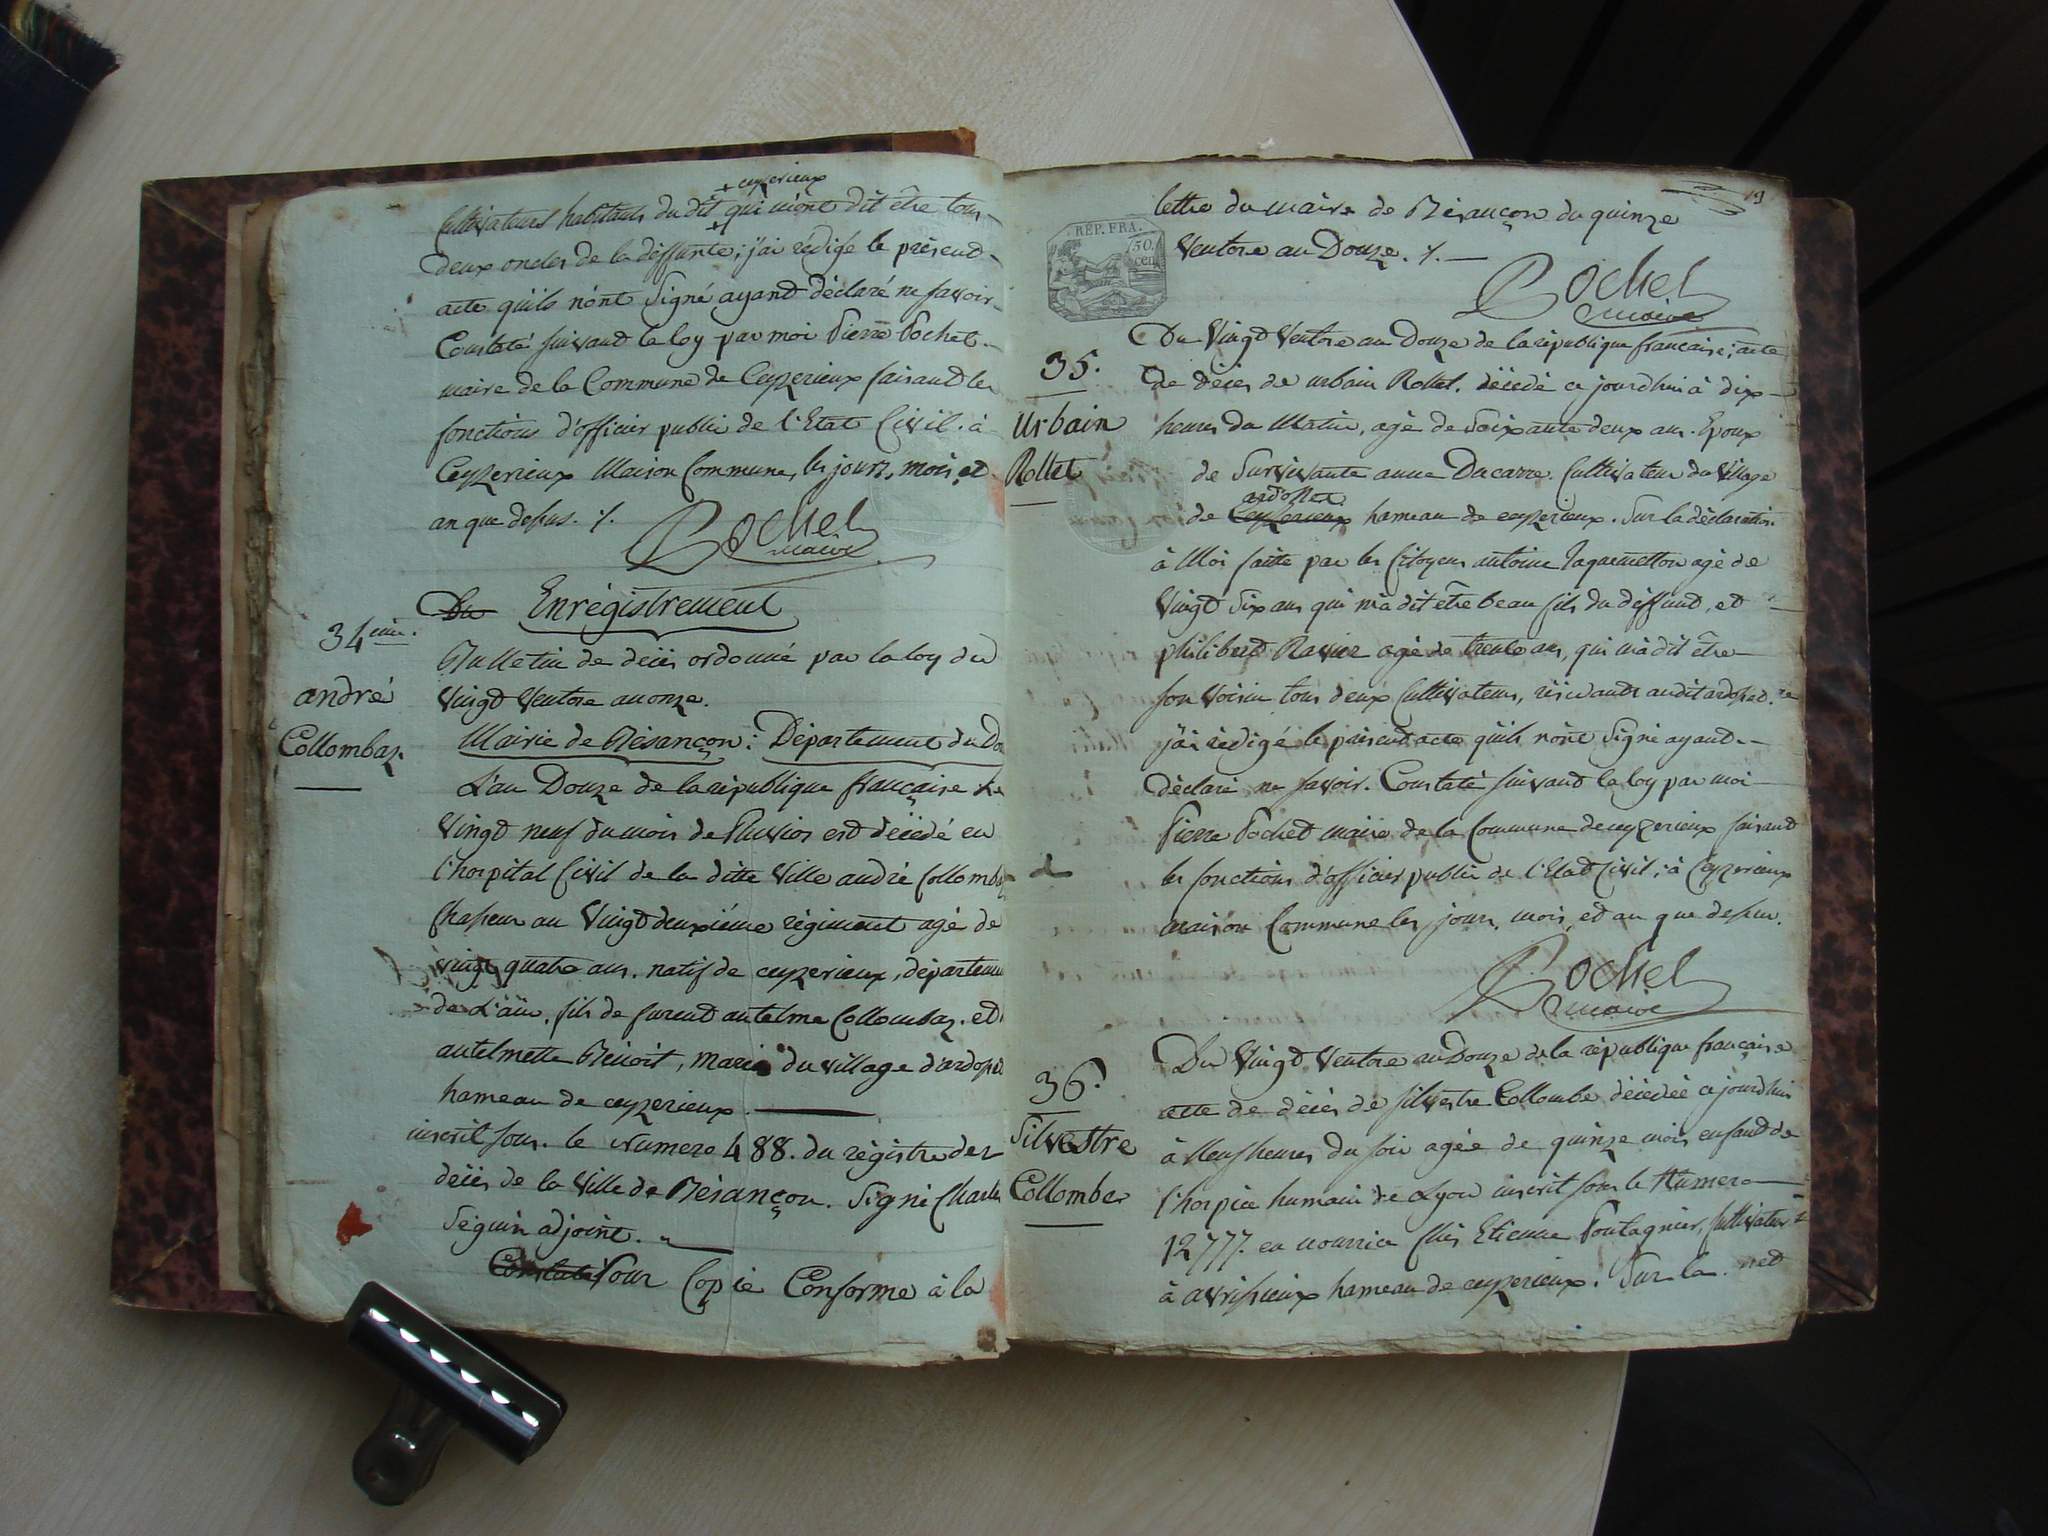 + ceyzerieux
Cultivateurs habitants du dit + qui m'ont dit être tous
deux oncles de la deffunte; j'ai rédigé le présent
acte qu'ils n'ont signé ayant déclaré ne savoir
Constaté suivant la loy par moi Pierre Pochet
maire de la Commune de Ceyzerieux faisant les
fonctions d'officier public de l'Etat Civil. à
Ceyzerieux Maison Commune, les jours, mois, et
an que dessus. ./.
Pochet
maire
34eme.
andré
Collombaz.
Du Enrégistrement
Bulletin de décès ordonné par la loy du
vingt Ventose an onze.
Mairie de Bésançon: Département du Do
L'an Douze de la république française Le
Vingt neuf du mois de Pluvios est décédé en
l'hospital Civil de la ditte Ville andré Collomba
Chasseur au Vingt deuxiéme régiment agé de
vingt quatre ans. natif de ceyzerieux, départeme
de L'ain, fils de furent antelme Collombaz. et
antelmette Benoit, mariés du village d'ardos
hameau de ceyzerieux.
inscrit sous le Numero 488. du régistre des
décès de la Ville de Bésançon. Signé Charles
Séguin adjoint.
Constaté Pour Copie Conforme à la
19
lettre du maire de Bésançon du quinze
Ventose an Douze. ./.
RÉP. FRA.
50.
cen
Pochet
maire
35.
Urbain
Rollet
Du Vingt Ventose an Douze de la république française; acte
de décès de urbain Rollet. décédé ce jourdhui à dix
heures du Matin, agé de Soixante deux ans. Epoux
de Survivante anne Ducarre. Cultivateur du Village
ardosset
de Ceyzerieux hameau de ceyzerieux. Sur la déclaration
à Moi faitte par les Citoyens antoine Jaquemetton agé de
Vingt Six ans qui m'a dit être beau fils du deffunt, et
philibert Ravier agé de trente ans, qui m'a dit être
son voisin tous deux Cultivateurs, résidants audit ardosset.
j'ai rédigé le présent acte qu'ils n'ont Signé ayant
déclaré ne savoir. Constaté suivant la loy par moi
Pierre Pochet maire de la Commune de ceyzerieux faisant
les fonctions d'officier public de l'Etat Civil; à Ceyzerieux
maison Commune les jours, mois, et an que dessus.
Pochet
maire
36.
Silvestre
Collombe
Du Vingt Ventose an Douze de la république française
acte de décès de silvestre Collombe décédée ce jourdhui
à Neuf heures du soir agée de quinze mois enfant de
l'hospice humain de Lyon inscrit sous le Numero
12777. en nourrice chés Etienne Pontagnier, Cultivateur
à avrissieux hameau de ceyzerieux. Sur la